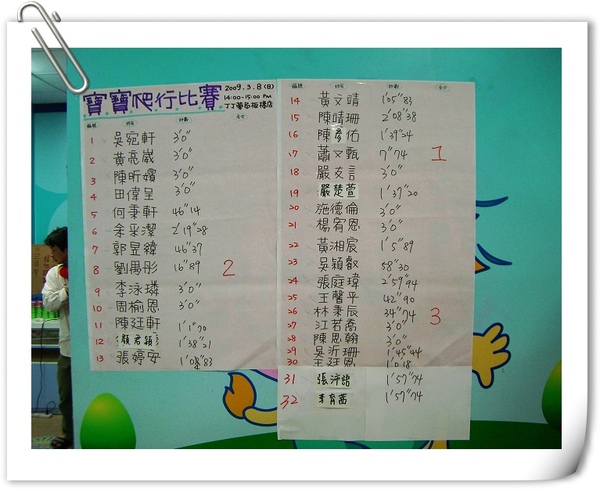 寶寶爬行比賽
2009.3.8(日)
14:00-15:00 PM
編號 姓名 秒數 名次
1 吳宛軒 3'0"
2 黃亮崴 3'0"
3 陳昕嬣 3'0"
4 田偉呈 3'0"
5 何秉軒 46"14
6 余采潔 2'19"28
7 郭昱緯 46"37
8 劉禺彤 16"89 2
9 李泳璘 3'0"
10 周榆恩 3'0"
11 陳廷軒 1'1"70
12 1'38"21
13 張婷安 1'08"83
編號 姓名 秒數 名次
14 黃文靖 1'05"83
15 陳靖珊 2'08"38
16 陳彥佑 1'39"34
17 蕭又甄 7"74 1
18 嚴友言 3'0"
19 嚴楚萱 1'37"20
20 施德倫 3'0"
21 楊宥恩 3'0"
22 黃湘宸 1'5"89
23 吳穎叡 58"30
24 張庭瑋 2'57"94
25 王馨平 42"90
26 林秉辰 34"74 3
27 江若喬 3'0"
28 陳思翰 3'0"
29 吳沂珊 1'45"44
30 王廷恩 1'0"18
31 1'57"74
32 李育茜 1'57"74